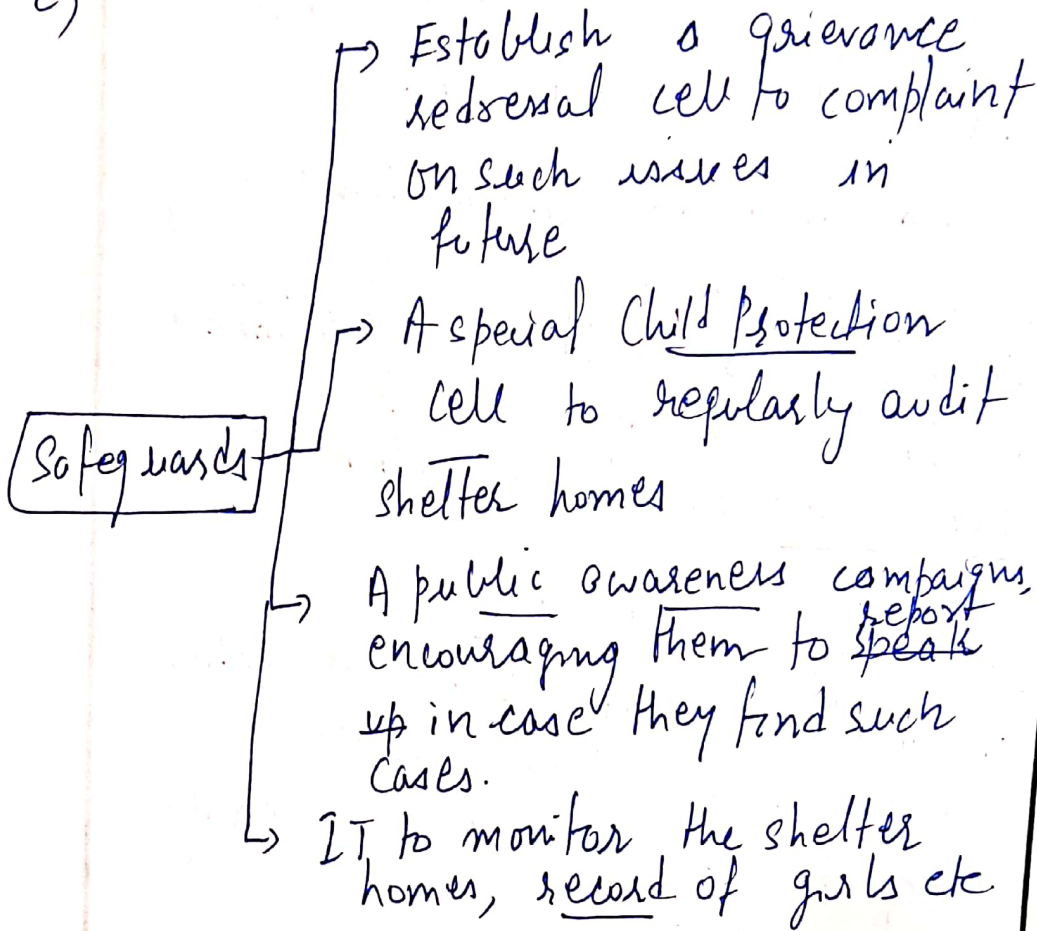 c)
→ Establish a grievance
redressal cell to complaint
on such issues in
future
→ A special Child Protection
cell to regularly audit
shelter homes
Safeguards
→ A public awareness campaigns,
report
encouraging them to speak
up in case they find such
cases.
→ IT to monitor the shelter
homes, record of girls etc